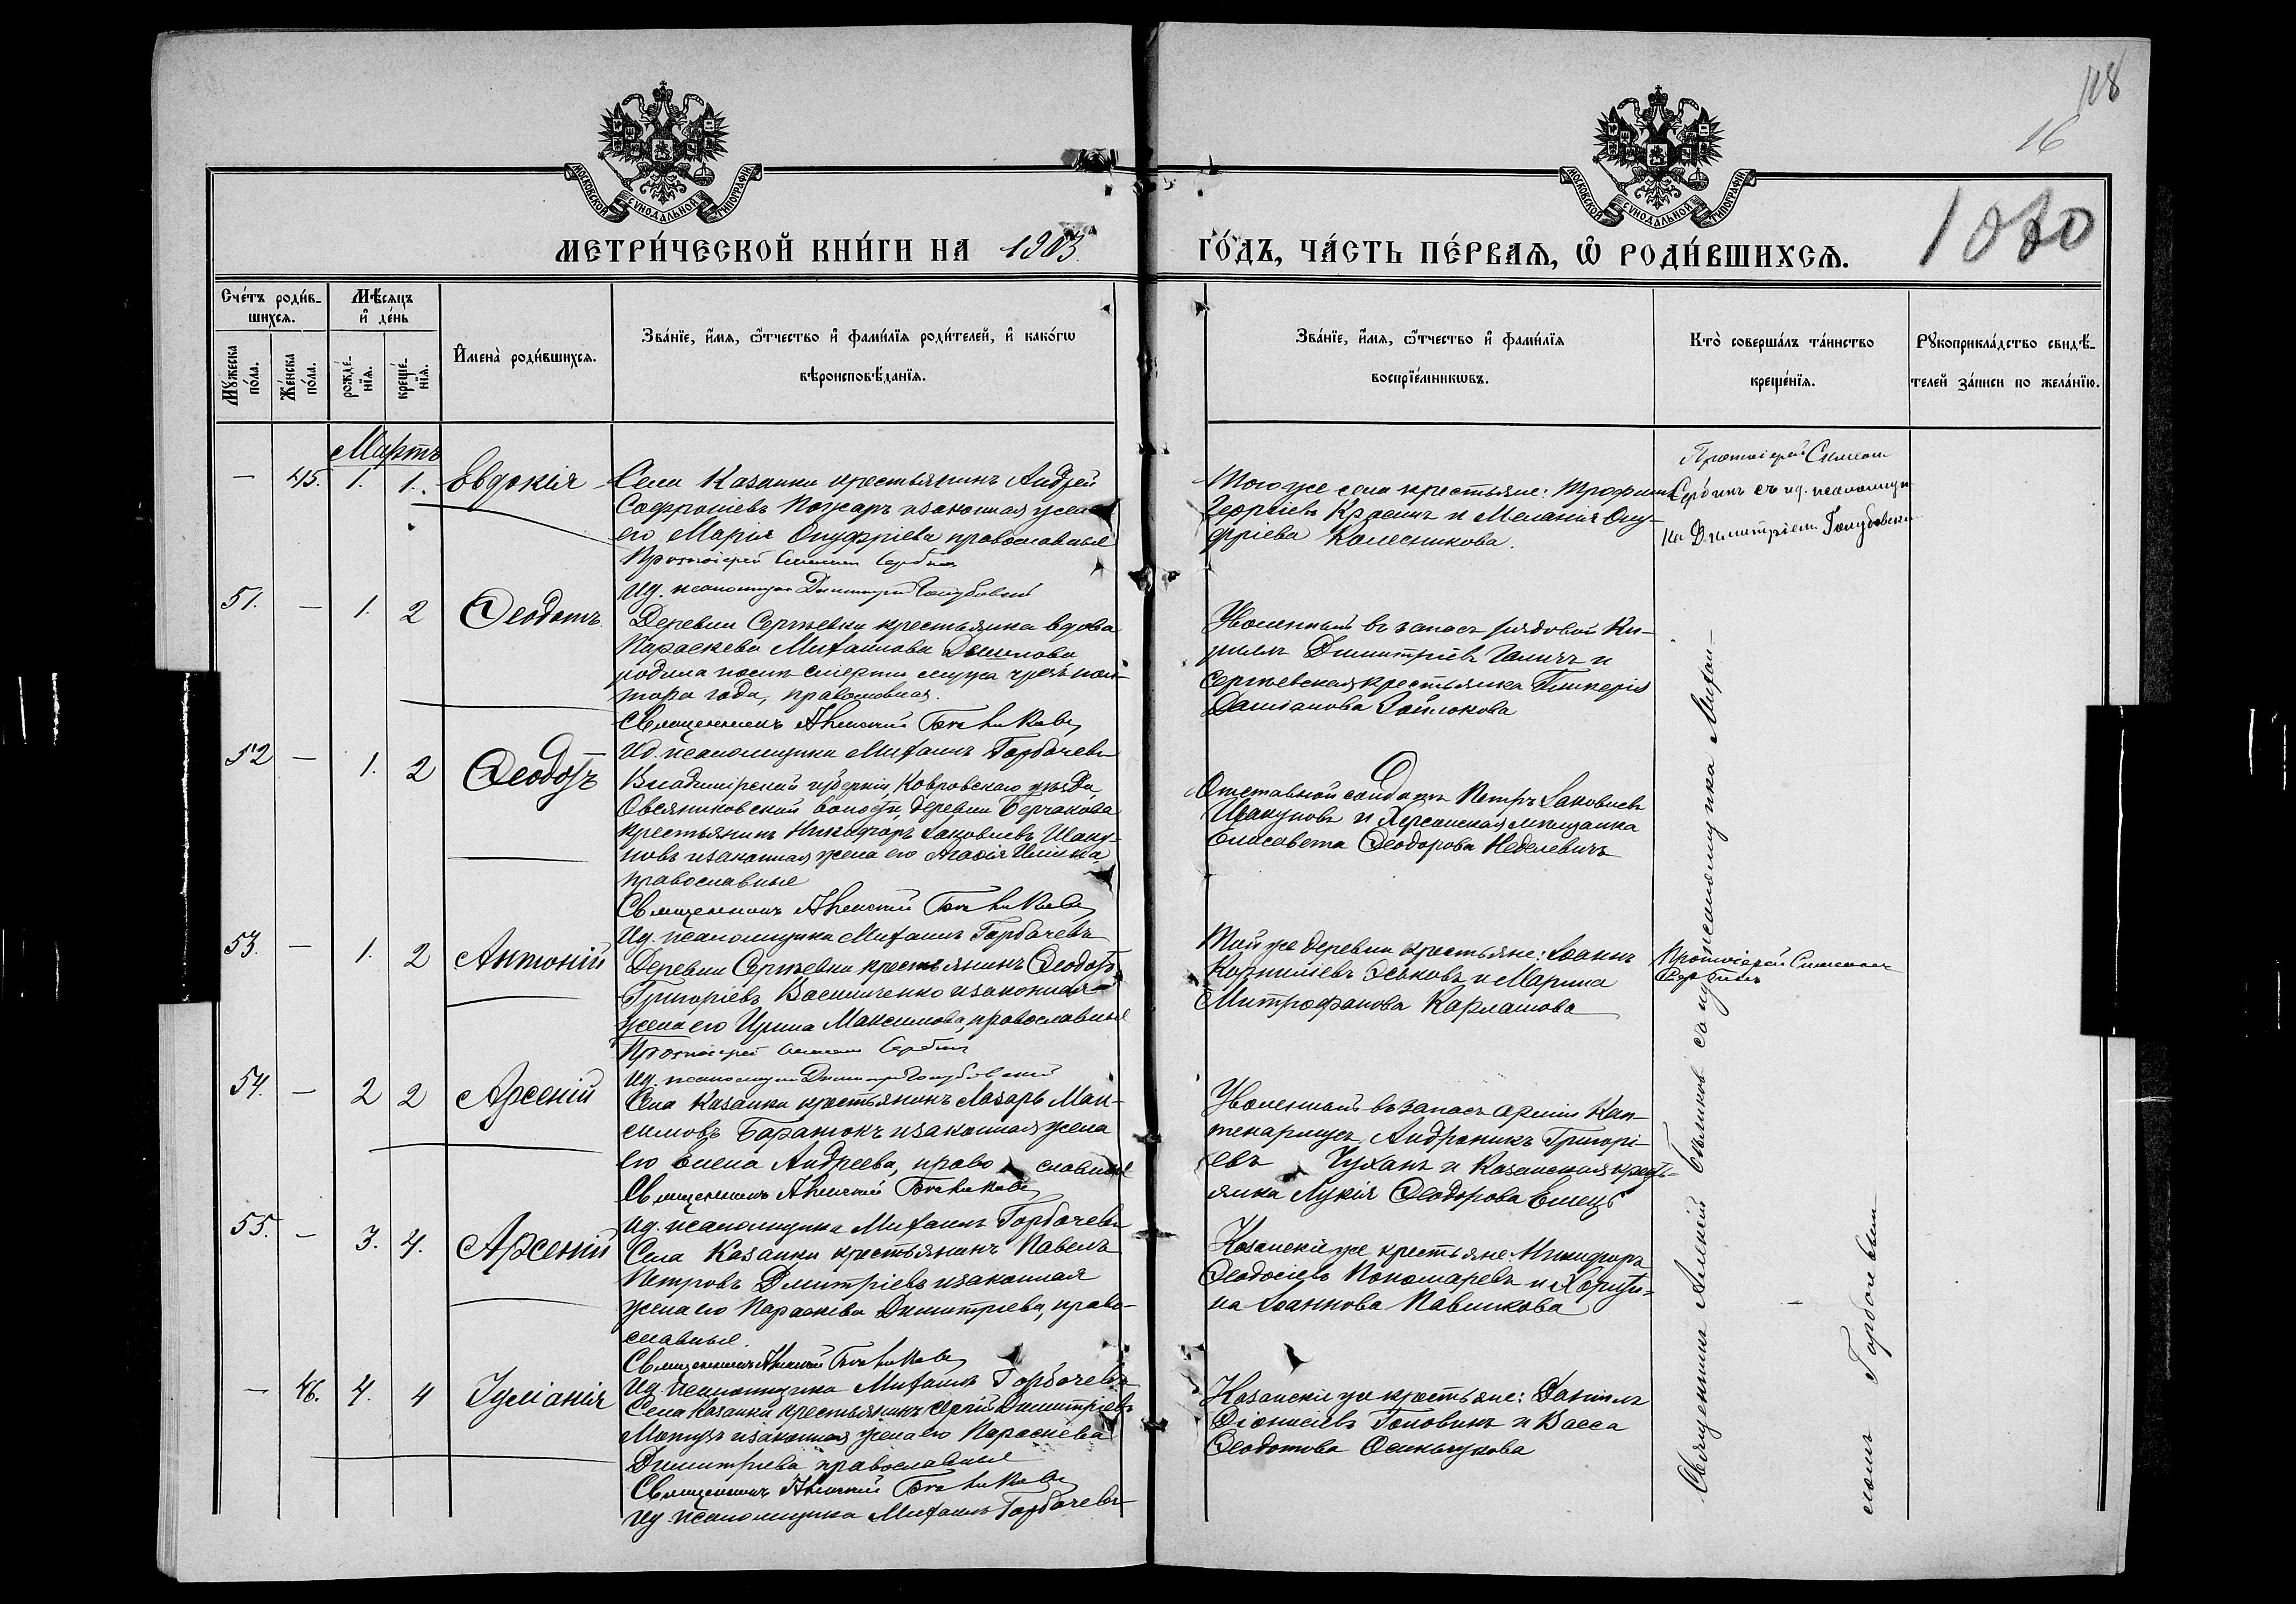 118
16
1080
МОСКОВСКОЙ СѴНОДАЛЬНОЙ ТИПОГРАФІИ
МОСКОВСКОЙ СѴНОДАЛЬНОЙ ТИПОГРАФІИ
МЕТРИ́ЧЕСКОЙ КНИ́ГИ НА 1903
ГО́ДЪ, ЧА́СТЬ ПЕ́РВАѦ, Ѽ РОДИ́ВШИХСѦ.
Сче́тъ роди́в-
шихсѧ.
Мѣ́сяцъ
и҆ де́нь
Мꙋ́жеска по́ла.
Же́нска по́ла.
рожде́-
нїѧ.
креще́-
нїѧ.
И҆мена̀ роди́вшихсѧ.
Зва́нїе, и҆́мѧ, ѻ҆́тчество и҆ фами́лїѧ роди́телей, и҆ како́гѡ
вѣроисповѣ́данїѧ.
Зва́нїе, и҆́мѧ, ѻ҆́тчество и҆ фами́лїѧ
воспрїе́мникѡвъ.
Кто̀ соверша́лъ та́инство
креще́нїѧ.
Рꙋкоприкла́дство свидѣ́-
телей за́писи по жела́нїю.
Мартъ
— 45. 1. 1. Евдокія
Села Казанки крестьянинъ Андрей
Софроніевъ Пожаръ изаконная жена
его Марія Онуфріева православные
Протоіерей Симеон Сербинъ
Ид. псаломщика Димитрій Голубовскій
Того же села крестьяне: Трофимъ
Георгіевъ Красин и Меланія Ону-
фріева Колесникова.
Протоіерей Симеон
Сербинъ съ ид. псаломщи-
ка Димитріем Голубовски
51. — 1. 2 Ѳеодотъ.
Деревни Сергѣевки крестьянка вдова
Параскева Михаилова
родила послѣ смерти мужа чрезъ пол-
тора года, православная.
Священникъ Алексій
Ид. псаломщика Михаилъ Горбачевъ
Уволенный въ запасъ рядовой Ки-
риллъ Димитріевъ Галичъ и
Сергѣевская крестьянка Гликерія
Даміанова
52 — 1. 2 Ѳеодотъ
Владимірской губерніи, Ковровскаго уѣзда
Овсяниковской волости, деревни Берчакова
крестьянинъ Никифоръ Іаковлевъ Шаку-
новъ изаконная жена его Агаѳія Ильина,
православные
Священникъ Алексій
Ид. псаломщика Михаилъ Горбачевъ
Отставной солдатъ Петръ Іаковлевъ
Шакуновъ и Херсонская мѣщанка
Елисавета Ѳеодорова Неделевичъ
53. — 1. 2 Антоній
Деревни Сергѣевки крестьянинъ Ѳеодотъ
Григоріевъ Василиченко изаконная
жена его Ирина Максимова, православные
Протоіерей Симеон Сербинъ
Ид. псаломщика Димитрій Голубовскій
Той же деревни крестьяне: Іоаннъ
Корниліевъ Еськовъ и Марина
Митрофанова Карлашова
Протоіерей Симеонъ
Сербинъ
54. — 2 2 Арсеній
Села Казанки крестьянинъ Лазарь Мак-
симовъ Баранюкъ изаконная жена
его Елена Андреева, православные
Священникъ Алексій
Ид. псаломщика Михаилъ Горбачевъ
Уволенный въ запасъ арміи Кап-
тенармусъ Андроникъ Григорі-
евъ Чуханъ и Казанская кресть-
янка Лукія Ѳеодорова Емецъ
55. — 3. 4. Арсеній
Села Казанки крестьянинъ Павелъ
Петровъ Дмитріевъ изаконная
жена его Параскева Димитріева, право-
славные.
Священникъ Алексій
Ид. псаломщика Михаилъ Горбачевъ
Казанскіе же крестьяне Никифоръ
Ѳеодосіевъ Пономаревъ и Харити-
на Іоаннова Павликова
— 46. 4. 4 Іуліанія
Села Казанки крестьянинъ Сергій Димитріевъ
Мотузъ изаконная жена его Параскева
Димитріева православные
Священникъ Алексій
Ид. псаломщика Михаилъ Горбачевъ
Казанскіе же крестьяне: Даніилъ
Діонисіевъ Головинъ и Васса
Ѳеодотова
Священникъ Алексій съ ид. псаломщика Михаи-
ломъ Горбачевым